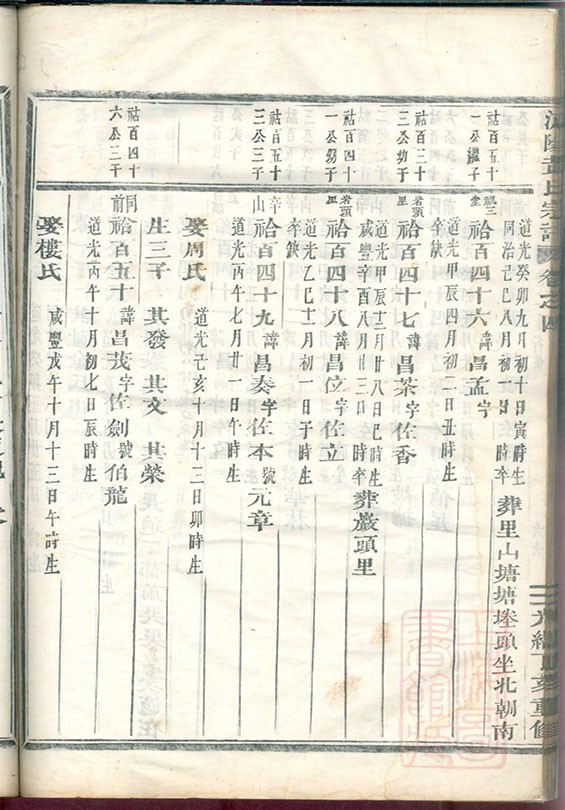 宗譜 卷之四
三 光緒丁亥重修
祜百五十一公繼子
祝三堂
祫百四十六諱昌孟字
道光癸卯九月初十日寅時生
同治己巳八月初一日時卒
葬里山塘塘塍頭坐北朝南
祜百三十三公幼子
岩頭里
祫百四十七諱昌茶字佐香
道光甲辰四月初二日丑時生
卒缺
祜百四十一公幼子
岩頭里
祫百四十八諱昌位字佐立
道光甲辰十二月廿八日巳時生
咸豐辛酉八月廿三日時卒
葬巖頭里
祜百五十三公三子
辛山
祫百四十九諱昌泰字佐本號元章
道光乙巳十一月初一日子時生
卒缺
道光丙午七月廿一日午時生
娶周氏
道光己亥十月十三日卯時生
生三子 其發 其文 其榮
祜百四十六公三子
同前
祫百五十諱昌茂字佐劍號伯龍
道光丙午十月初七日辰時生
娶樓氏
咸豐戊午十月十三日午時生